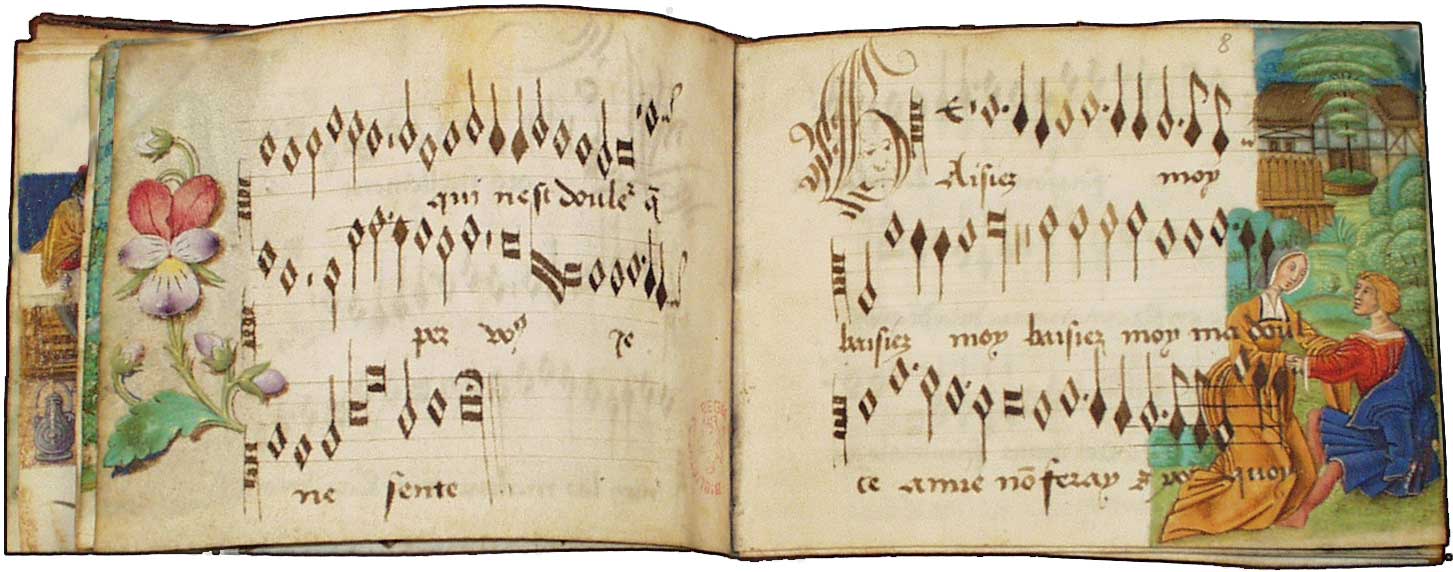 qui nest doule q̃
per vo⁹ Je
ne sente
8
BAisiez moy
baisiez moy baisiez moy ma doul
ce amie nō feray & por quoy